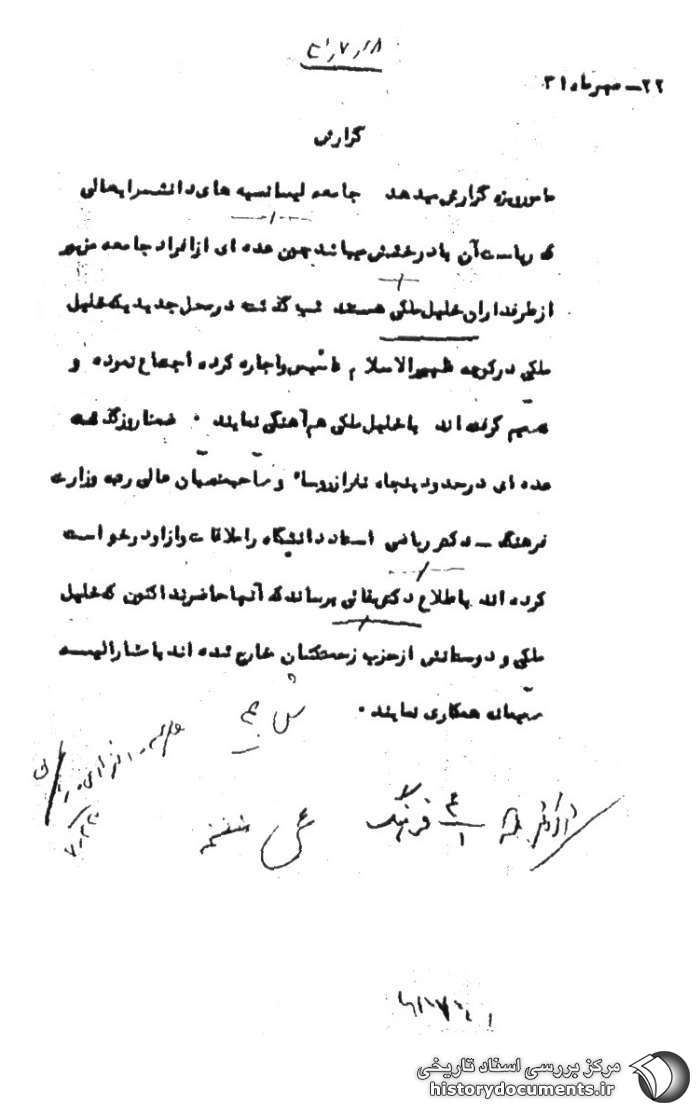 ۲۲ـ مهرماه ۳۱
گزارش
مامور ویژه گزارش میدهد جامعه لیسانسیه های دانشسرایعالی
که ریاست آن با درخشش میباشد چون عده ای از افراد جامعه مزبور
از طرفداران خلیل ملکی هستند شب گذشته در محل جدیدیکه خلیل
ملکی در کوچه ظهیرالاسلام تاسیس و اجاره کرده اجتماع نموده و
تصمیم گرفته اند با خلیل ملکی هم آهنگی نمایند . ضمنا روز گذشته
عده ای در حدود پنجاه نفر از روسا و صاحبمنصبان عالی رتبه وزارت
فرهنگ ـ دکتر ریاضی استاد دانشگاه را ملاقات و از او درخواست
کرده اند باطلاع دکتر بقائی برساند که آنها حاضرند اکنون که خلیل
ملکی و دوستانش از حزب زحمتکشان خارج شده اند با مشارالیه
صمیمانه همکاری نمایند .
فرهنگ
مرکز بررسی اسناد تاریخی
historydocuments.ir